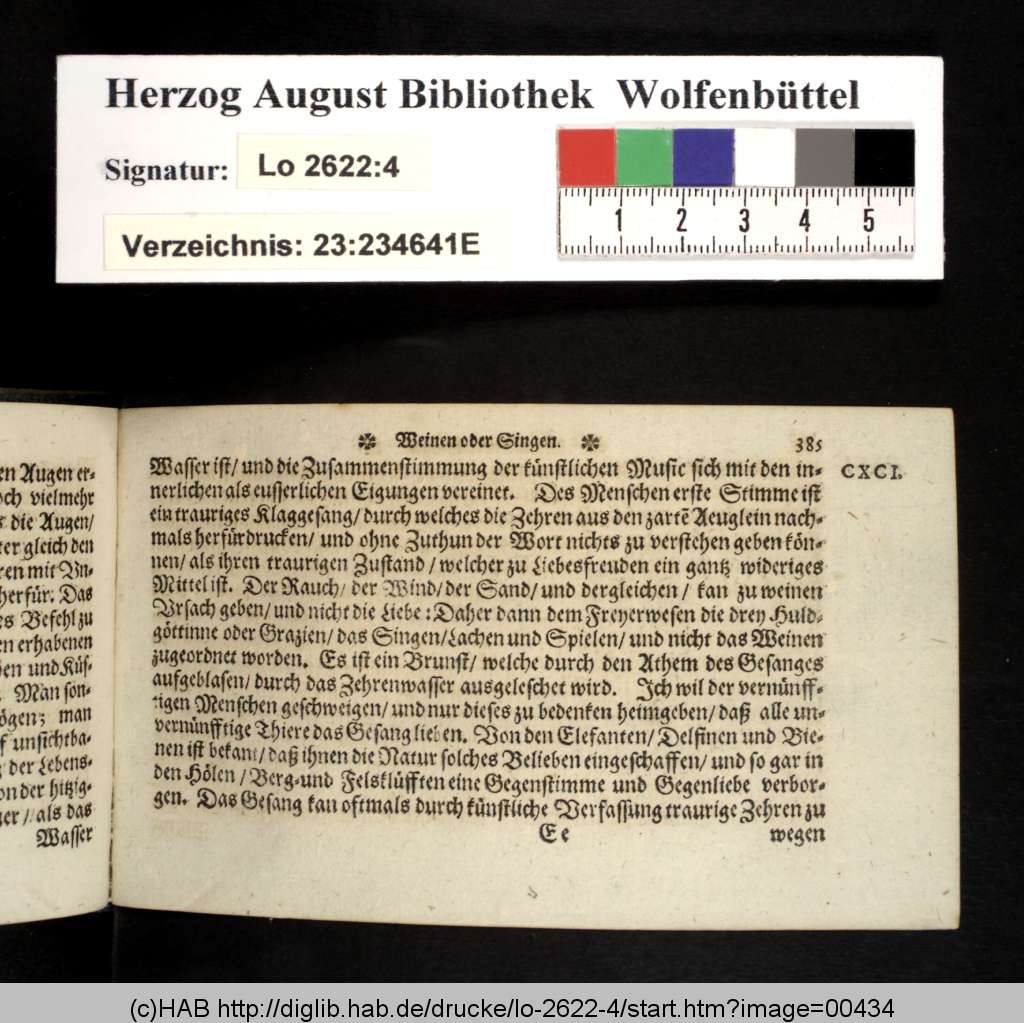 Herzog August Bibliothek Wolfenbüttel
Signatur: Lo 2622:4
Verzeichnis: 23:234641E
1 2 3 4 5
en Augen er-
och vielmehr
die Augen/
ter gleich den
ren mit Vn-
herfür. Das
es Befehl zu
en erhabenen
en und Küs-
Man son-
ögen; man
f unsichtba-
der Lebens-
on der hitzig-
ger / als das
Wasser
Weinen oder Singen. 385
Wasser ist/ und die Zusammenstimmung der künstlichen Music sich mit den in- CXCI.
nerlichen als eusserlichen Eigungen vereinet. Des Menschen erste Stimme ist
ein trauriges Klaggesang/ durch welches die Zehren aus den zartē Aeuglein nach-
mals herfürdrucken/ und ohne Zuthun der Wort nichts zu verstehen geben kön-
nen/ als ihren traurigen Zustand / welcher zu Liebesfreuden ein gantz wideriges
Mittel ist. Der Rauch/ der Wind/ der Sand/ und dergleichen / kan zu weinen
Vrsach geben/ und nicht die Liebe: Daher dann dem Freyerwesen die drey Huld-
göttinne oder Grazien/ das Singen/ Lachen und Spielen/ und nicht das Weinen
zugeordnet worden. Es ist ein Brunst/ welche durch den Athem des Gesanges
aufgeblasen/ durch das Zehrenwasser ausgeleschet wird. Ich wil der vernünff-
tigen Menschen geschweigen/ und nur dieses zu bedenken heimgeben/ daß alle un-
vernünfftige Thiere das Gesang lieben. Von den Elefanten/ Delfinen und Bie-
nen ist bekant/ daß ihnen die Natur solches Belieben eingeschaffen/ und so gar in
den Hölen / Berg- und Felsklüfften eine Gegenstimme und Gegenliebe verbor-
gen. Das Gesang kan oftmals durch künstliche Verfassung traurige Zehren zu
E e wegen
(c)HAB http://diglib.hab.de/drucke/lo-2622-4/start.htm?image=00434